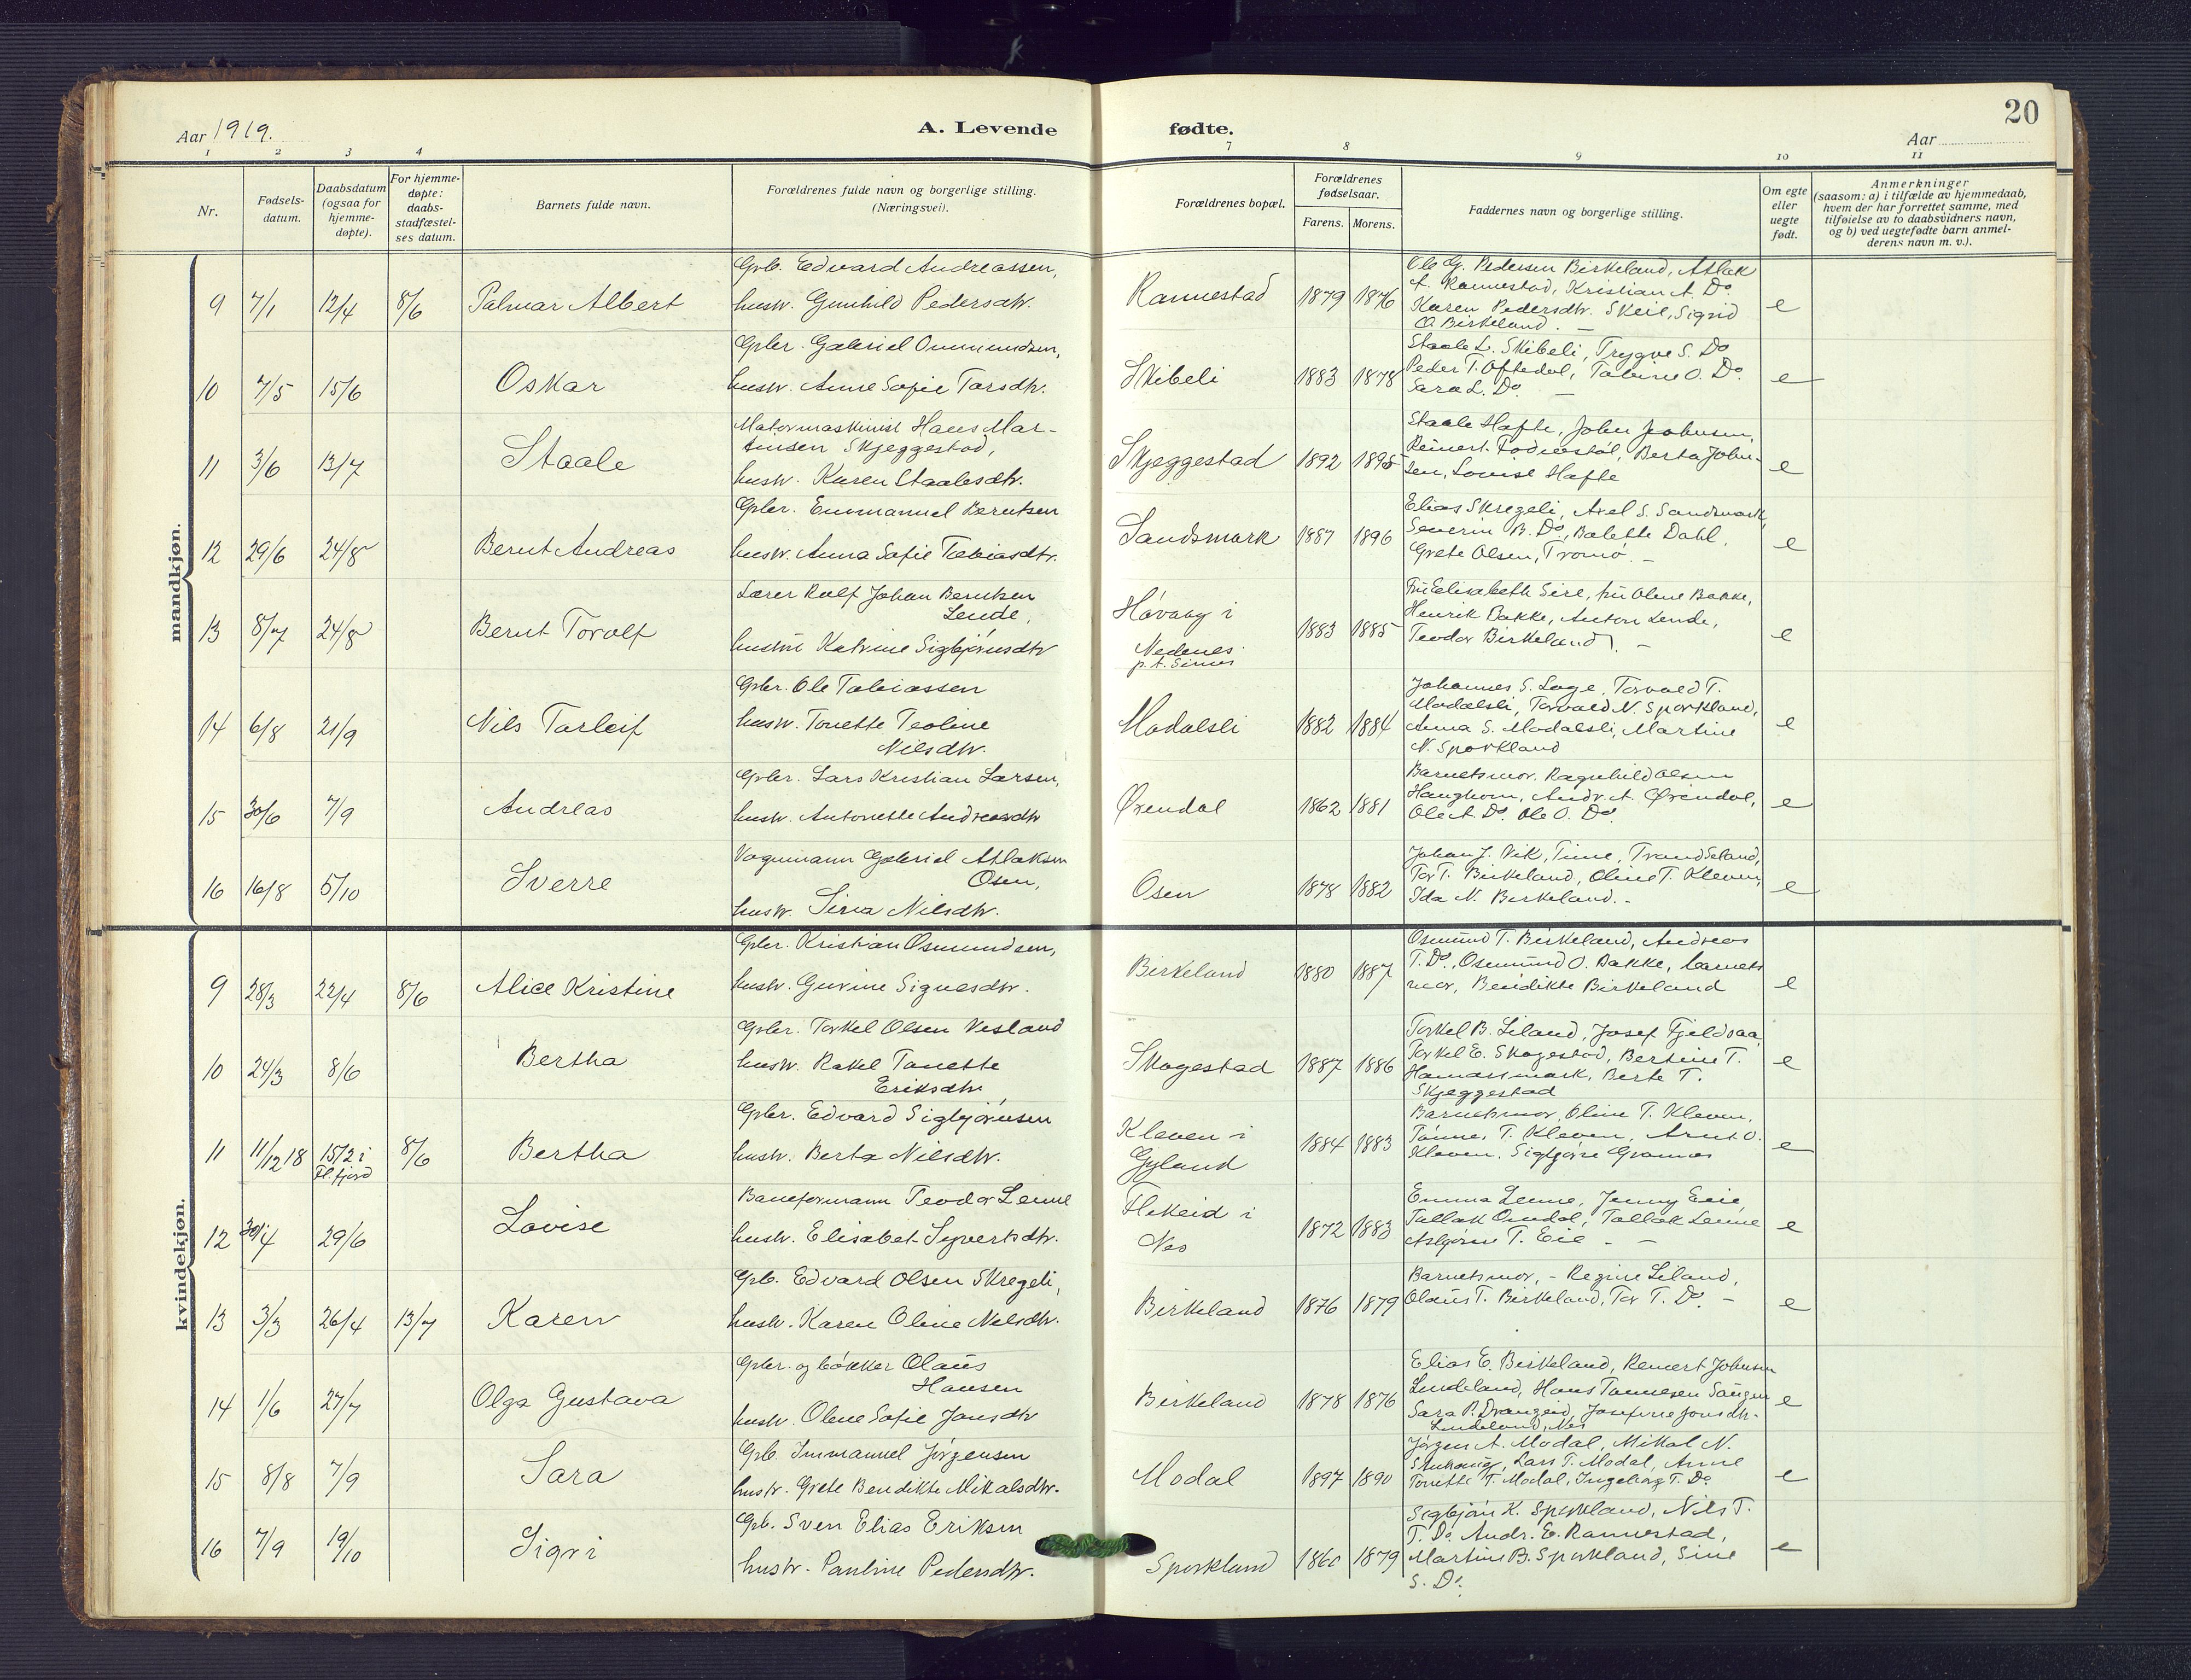 20
Aar 1919.
A. Levende
fødte.
Aar
1 2 3 4
7 8 9 10 11
Nr.
Fødsels-
datum.
Daabsdatum
(ogsaa for
hjemme-
døpte).
For hjemme-
døpte:
daabs-
stadfæstel-
ses datum.
Barnets fulde navn.
Forældrenes fulde navn og borgerlige stilling.
(Næringsvei).
Forældrenes bopæl.
Forældrenes
fødselsaar.
Farens. Morens.
Faddernes navn og borgerlige stilling.
Om egte
eller
uegte
født.
Anmerkninger
(saasom: a) i tilfælde av hjemmedaab,
hvem der har forrettet samme, med
tilføielse av to daabsvidners navn,
og b) ved uegtefødte barn anmel-
derens navn m. v.).
mandkjøn.
9 7/1 12/4 8/6 Palmar Albert
Gpb. Edvard Andreassen,
hustr. Gunhild Pedersdtr.
Rannestad 1879 1876
Ole G. Pedersen Birkeland, Atlak
A. Rannestad, Kristian A. Do.
Karen Pedersdtr. Skeie, Sigrid
O. Birkeland. –
e
10 7/5 15/6 Oskar
Gpbr. Gabriel Ommundsen,
hustr. Anne Sofie Tarsdtr.
Skibeli 1883 1878
Staale L. Skibeli, Trygve S. Do
Peder T. Oftedal, Tabine O. Do.
Sara L. Do. –
e
11 3/6 13/7 Staale
Motormaskinist Hans Mar-
tinsen Skjeggestad,
hustr. Karen Staalesdtr.
Skjeggestad 1892 1895
Staale Hafte, John Johnsen,
Reinert Fodnestøl, Berta John-
sen, Lovise Hafte
e
12 29/6 24/8 Bernt Andreas
Gpbr. Emmanuel Berntsen
hustr. Anna Sofie Tobiasdtr.
Sandsmark 1887 1896
Elias Skregeli, Axel S. Sandsmark,
Severin B. Do, Bolette Dahl,
Grete Olsen, Tromø. –
e
13 8/7 24/8 Bernt Torolf
Lærer Rolf Johan Berntsen
Lende,
hustru Katrine Sigbjørnsdtr
Høvaag i
Nedenes
p.t. Sirnes
1883 1885
Fru Elisabeth Sire, fru Olene Bakke,
Henrik Bakke, Anton Lende,
Teodor Birkeland. –
e
14 6/8 21/9 Nils Torleif
Gpbr. Ole Tobiassen
hustr. Tonette Teoline
Nilsdtr.
Modalsli 1882 1884
Johannes S. Loge, Torvald T.
Modalsli, Torvald N. Sporkland,
Anna S. Modalsli, Martine
N. Sporkland
e
15 30/6 7/9 Andreas
Gpbr. Lars Kristian Larsen,
hustr. Antonette Andreasdtr
Ørendal 1862 1881
Barnets mor, Ragnhild Olsen
Haughom, Andr. A. Ørendal,
Ole A. Do. Ole O. Do.
e
16 16/8 5/10 Sverre
Vognmann Gabriel Atlaksen
Osen,
hustr. Sina Nilsdtr.
Osen 1878 1882
Johan J. Vik, Tine, Trand Seland,
Tor T. Birkeland, Oline T. Kleven,
Ida N. Birkeland. –
e
kvindekjøn.
9 28/3 22/4 8/6 Alice Kristine
Gpbr. Kristian Osmundsen,
hustr. Gurine Signesdtr.
Birkeland 1880 1887
Osmund T. Birkeland, Andreas
T. Do., Osmund O. Bakke, barnets
mor, Bendikte Birkeland
e
10 24/3 8/6 Bertha
Gpbr. Torkel Olsen Vesland
hustr. Rakel Tonette
Eriksdtr.
Skogestad 1887 1886
Torkel B. Liland, Josef Fjeldsaa,
Torkel E. Skogestad, Bertine T.
Hamarsmark, Berte T.
Skjeggestad
e
11 11/12 18 15/2 i
Fl. fjord
8/6 Bertha
Gpbr. Edvard Sigbjørnsen
hustr. Berta Nilsdtr.
Kleven i
Gyland
1884 1883
Barnets mor, Oline T. Kleven,
Tønnes T. Kleven, Arnt O.
Kleven, Sigbjørn Grannes
e
12 30/4 29/6 Lovise
Baneformann Teodor Lenne
hustr. Elisabet Syvertsdtr.
Flikeid i
Nes
1872 1883
Emma Lenne, Jenny Eeie,
Tallak Omdal, Tallak Lenne
Asbjørn T. Eie – –
e
13 3/3 26/4 13/7 Karen
Gpb. Edvard Olsen Skregeli,
hustr. Karen Oline Nelsdtr.
Birkeland 1876 1879
Barnets mor, – Regine Liland,
Olaus T. Birkeland, Tor T. Do. –
e
14 1/6 27/7 Olga Gustava
Gpbr. og bøkker Olaus
Hansen
hustr. Olene Sofie Jonsdtr
Birkeland 1878 1876
Elias E. Birkeland, Reinert Johnsen
Lindeland, Hans Tønnesen
Sara P. Drangeid, Josefine Jonsdtr.
Lindeland, Nes
e
15 8/8 7/9 Sara
Gpb. Immanuel Jørgensen
hustr. Grete Bendikte Mikalsdtr.
Modal 1897 1890
Jørgen A. Modal, Mikal N.
Lars T. Modal, Anne
Tonette T. Modal, Ingeborg T. Do.
e
16 7/9 19/10 Sigri
Gpb. Sven Elias Eriksen
hustr. Pauline Pedersdtr.
Sporkland 1860 1879
Sigbjørn K. Sporkland, Nils T.
T. Do. Andr. E. Rannestad,
Martine B. Sporkland, Sine
S. Do.
e